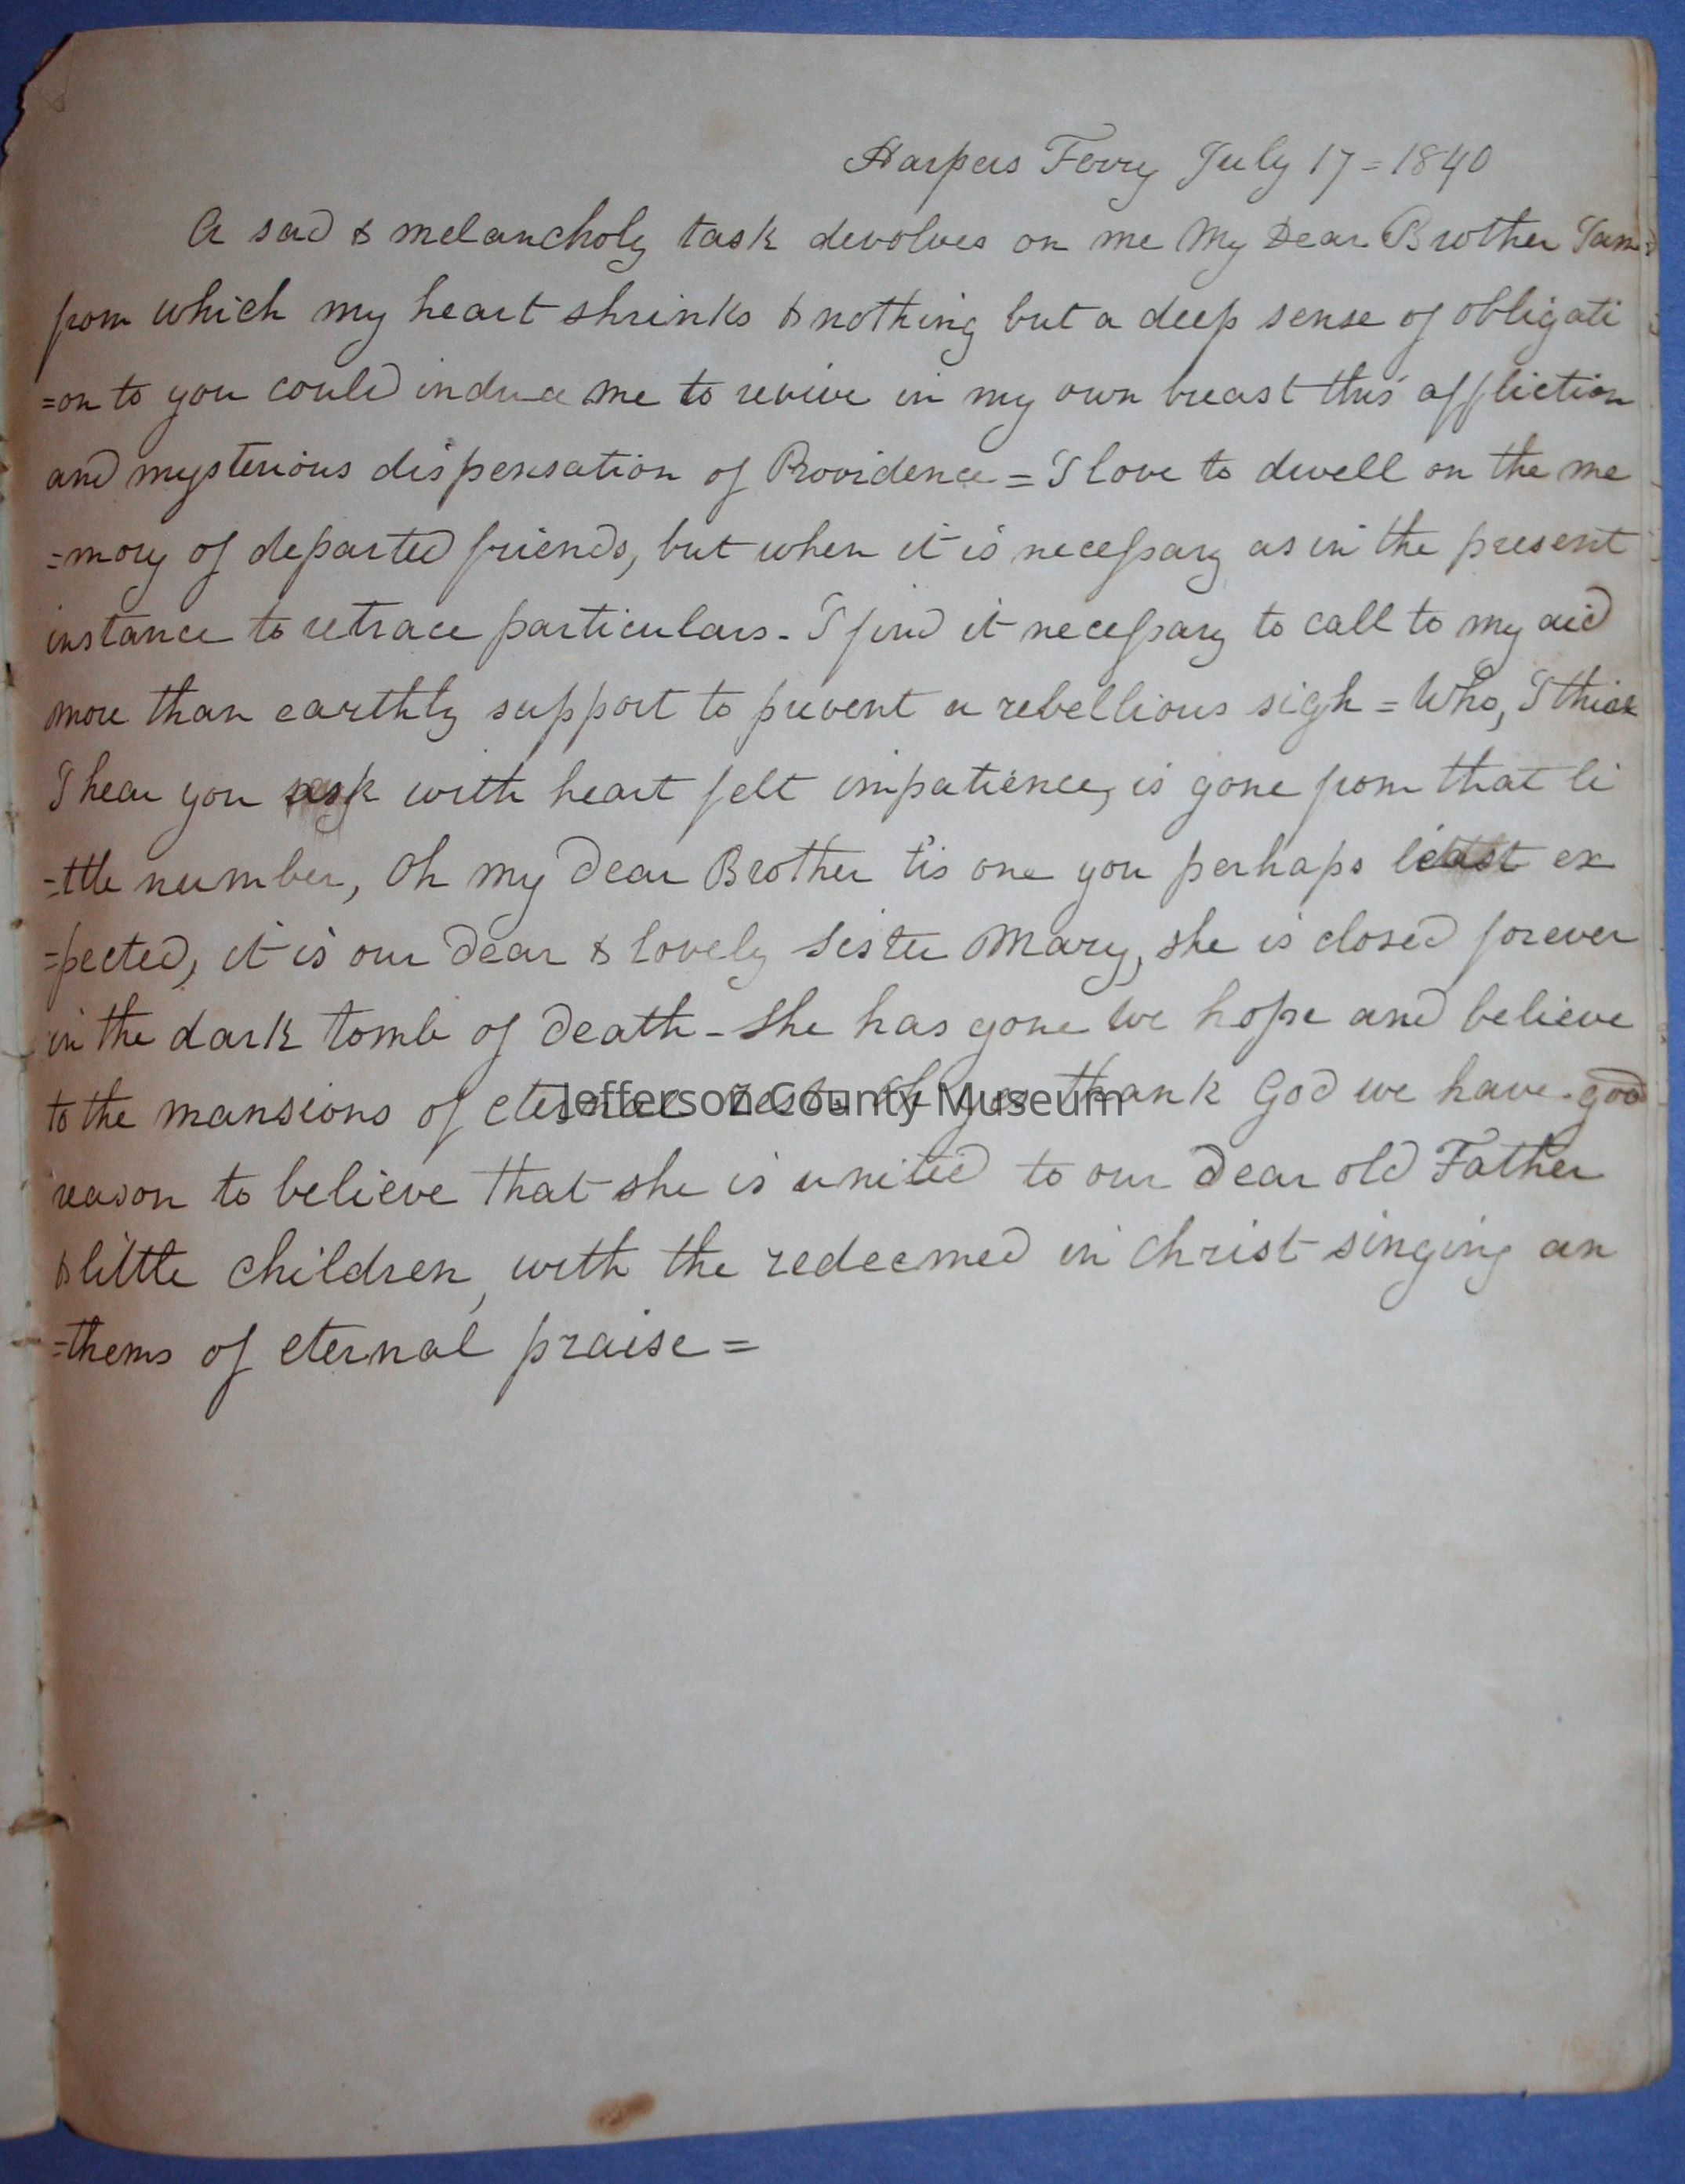 Harpers Ferry July 17 = 1840
A sad & melancholy task devolves on me My Dear Brother
from which my heart shrinks & nothing but a deep sense of obligati
=on to you could induce me to revive in my own breast this affliction
and mysterious dispensation of Providence = I love to dwell on the me
=mory of departed friends, but when it is necessary as in the present
instance to retrace particulars - I find it necessary to call to my aid
more than earthly support to prevent a rebellious sigh = Who, I think
I hear you ask with heart felt impatience, is gone from that li
=ttle number, Oh my dear Brother tis one you perhaps least ex
=pected, it is our dear & lovely Sister Mary, she is closed forever
in the dark tomb of death - She has gone we hope and believe
to the mansions of eternal rest Oh yes thank God we have good
Jefferson County Museum
reason to believe that she is united to our dear old Father
& little children, with the redeemed in Christ singing an
=thems of eternal praise =